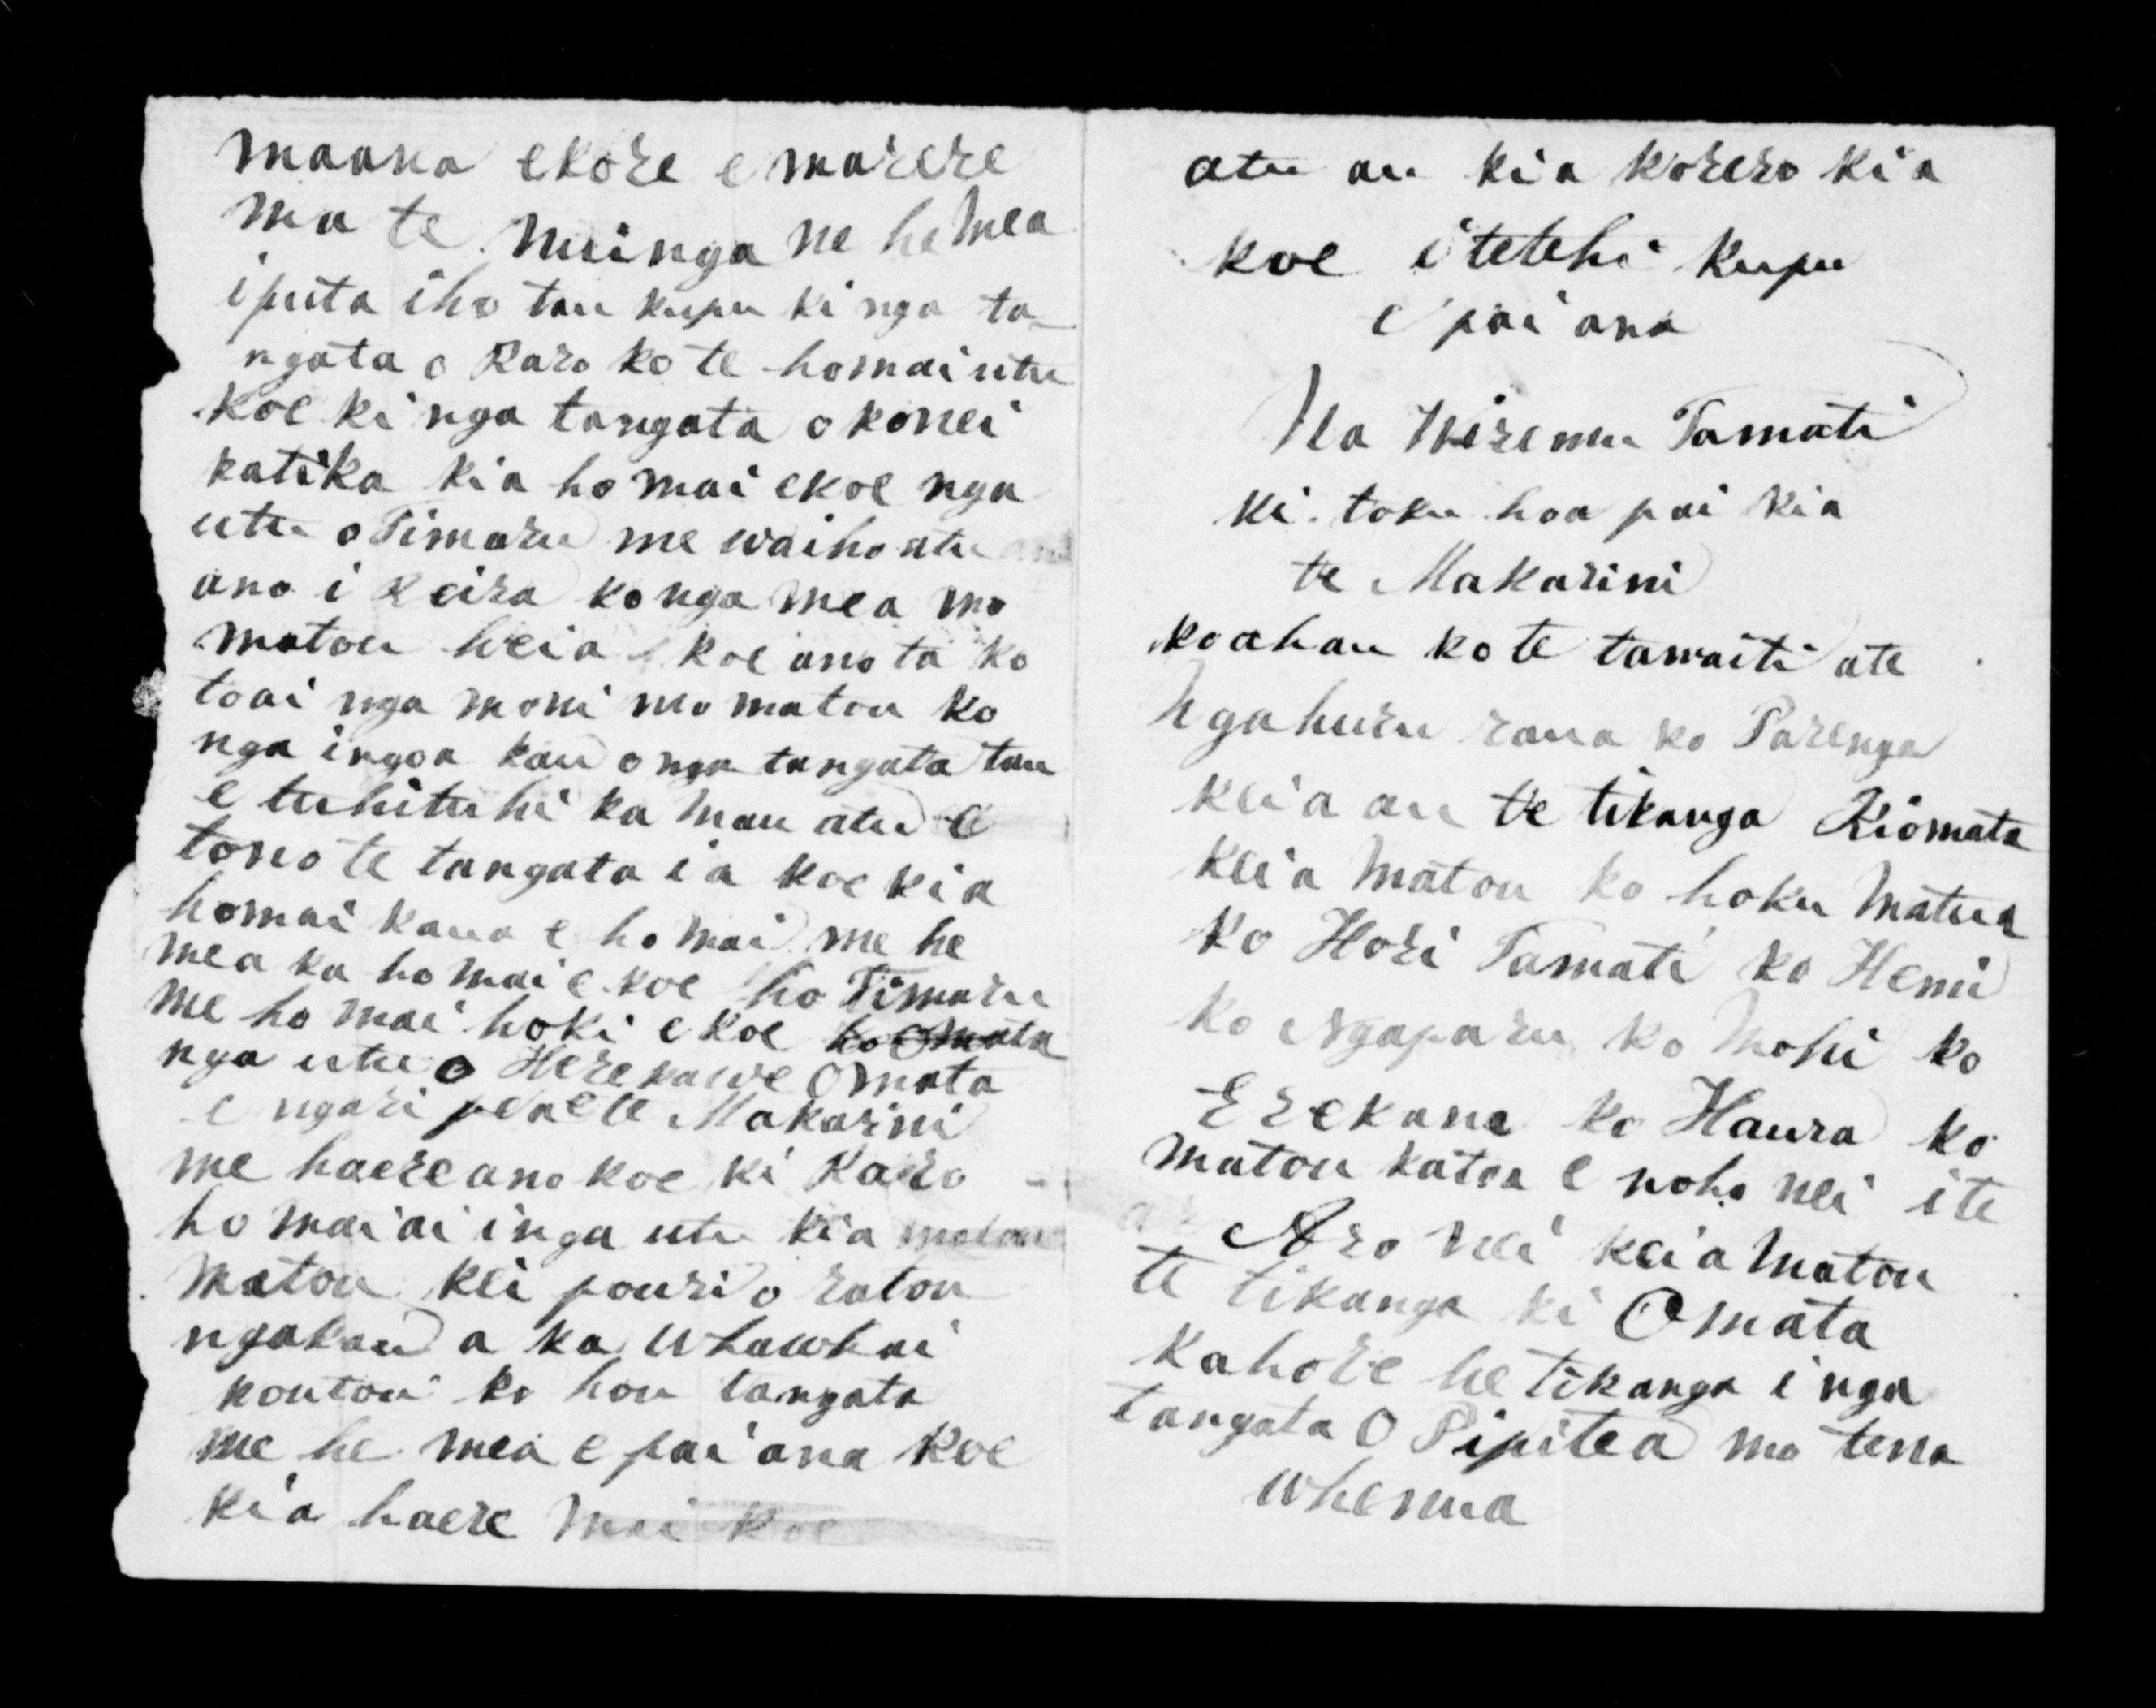 maana ekore e marere
ma te nuinga ne he mea
i puta iho tau kupu ki nga ta-
ngata o Raro ko te homai utu
koe ki nga tangata o konei
katika kia ho mai ekoe nga
utu o Timaru me waiho atu
ano i Reira ko nga mea mo
matou heia koe ano ta ko
toai nga moni mo matou ko
nga ingoa kau o nga tangata tau
e tuhituhi ka mau atu e
tono te tangata i a koe kia
homai kaua e ho mai me he
mea ka ho mai e koe ho Timaru
me ho mai hoki e koe ho Omata
nga utu o Herekawe Omata
e ngari pea e te Makarini
me haere ano koe ki Raro
ho mai ai i nga utu kia
matou kei pouri o ratou
ngakau a ka whawhai
koutou ko hou tangata
me he mea e pai ana koe
kia haere mai koe
atu au kia korero kia
koe i tetehi kupu
e pai ana
Na Wiremu Tamati
ki toku hoa pai kia
te Makarini
ko ahau ko te tawaiti ate
Ngahuru raua ko Parenga
keia au te tikanga Kiomata
keia matou ko hoku matua
ko Hori Tamati ko Hemi
ko Ngaparu ko Mohi ko
Erekana ko Haura ko
matou katoa e noho nei i te
Aro nei keia matou
te tikanga ki Omata
Kahore he tikanga i nga
tangata O Pipitea mo tena
whenua